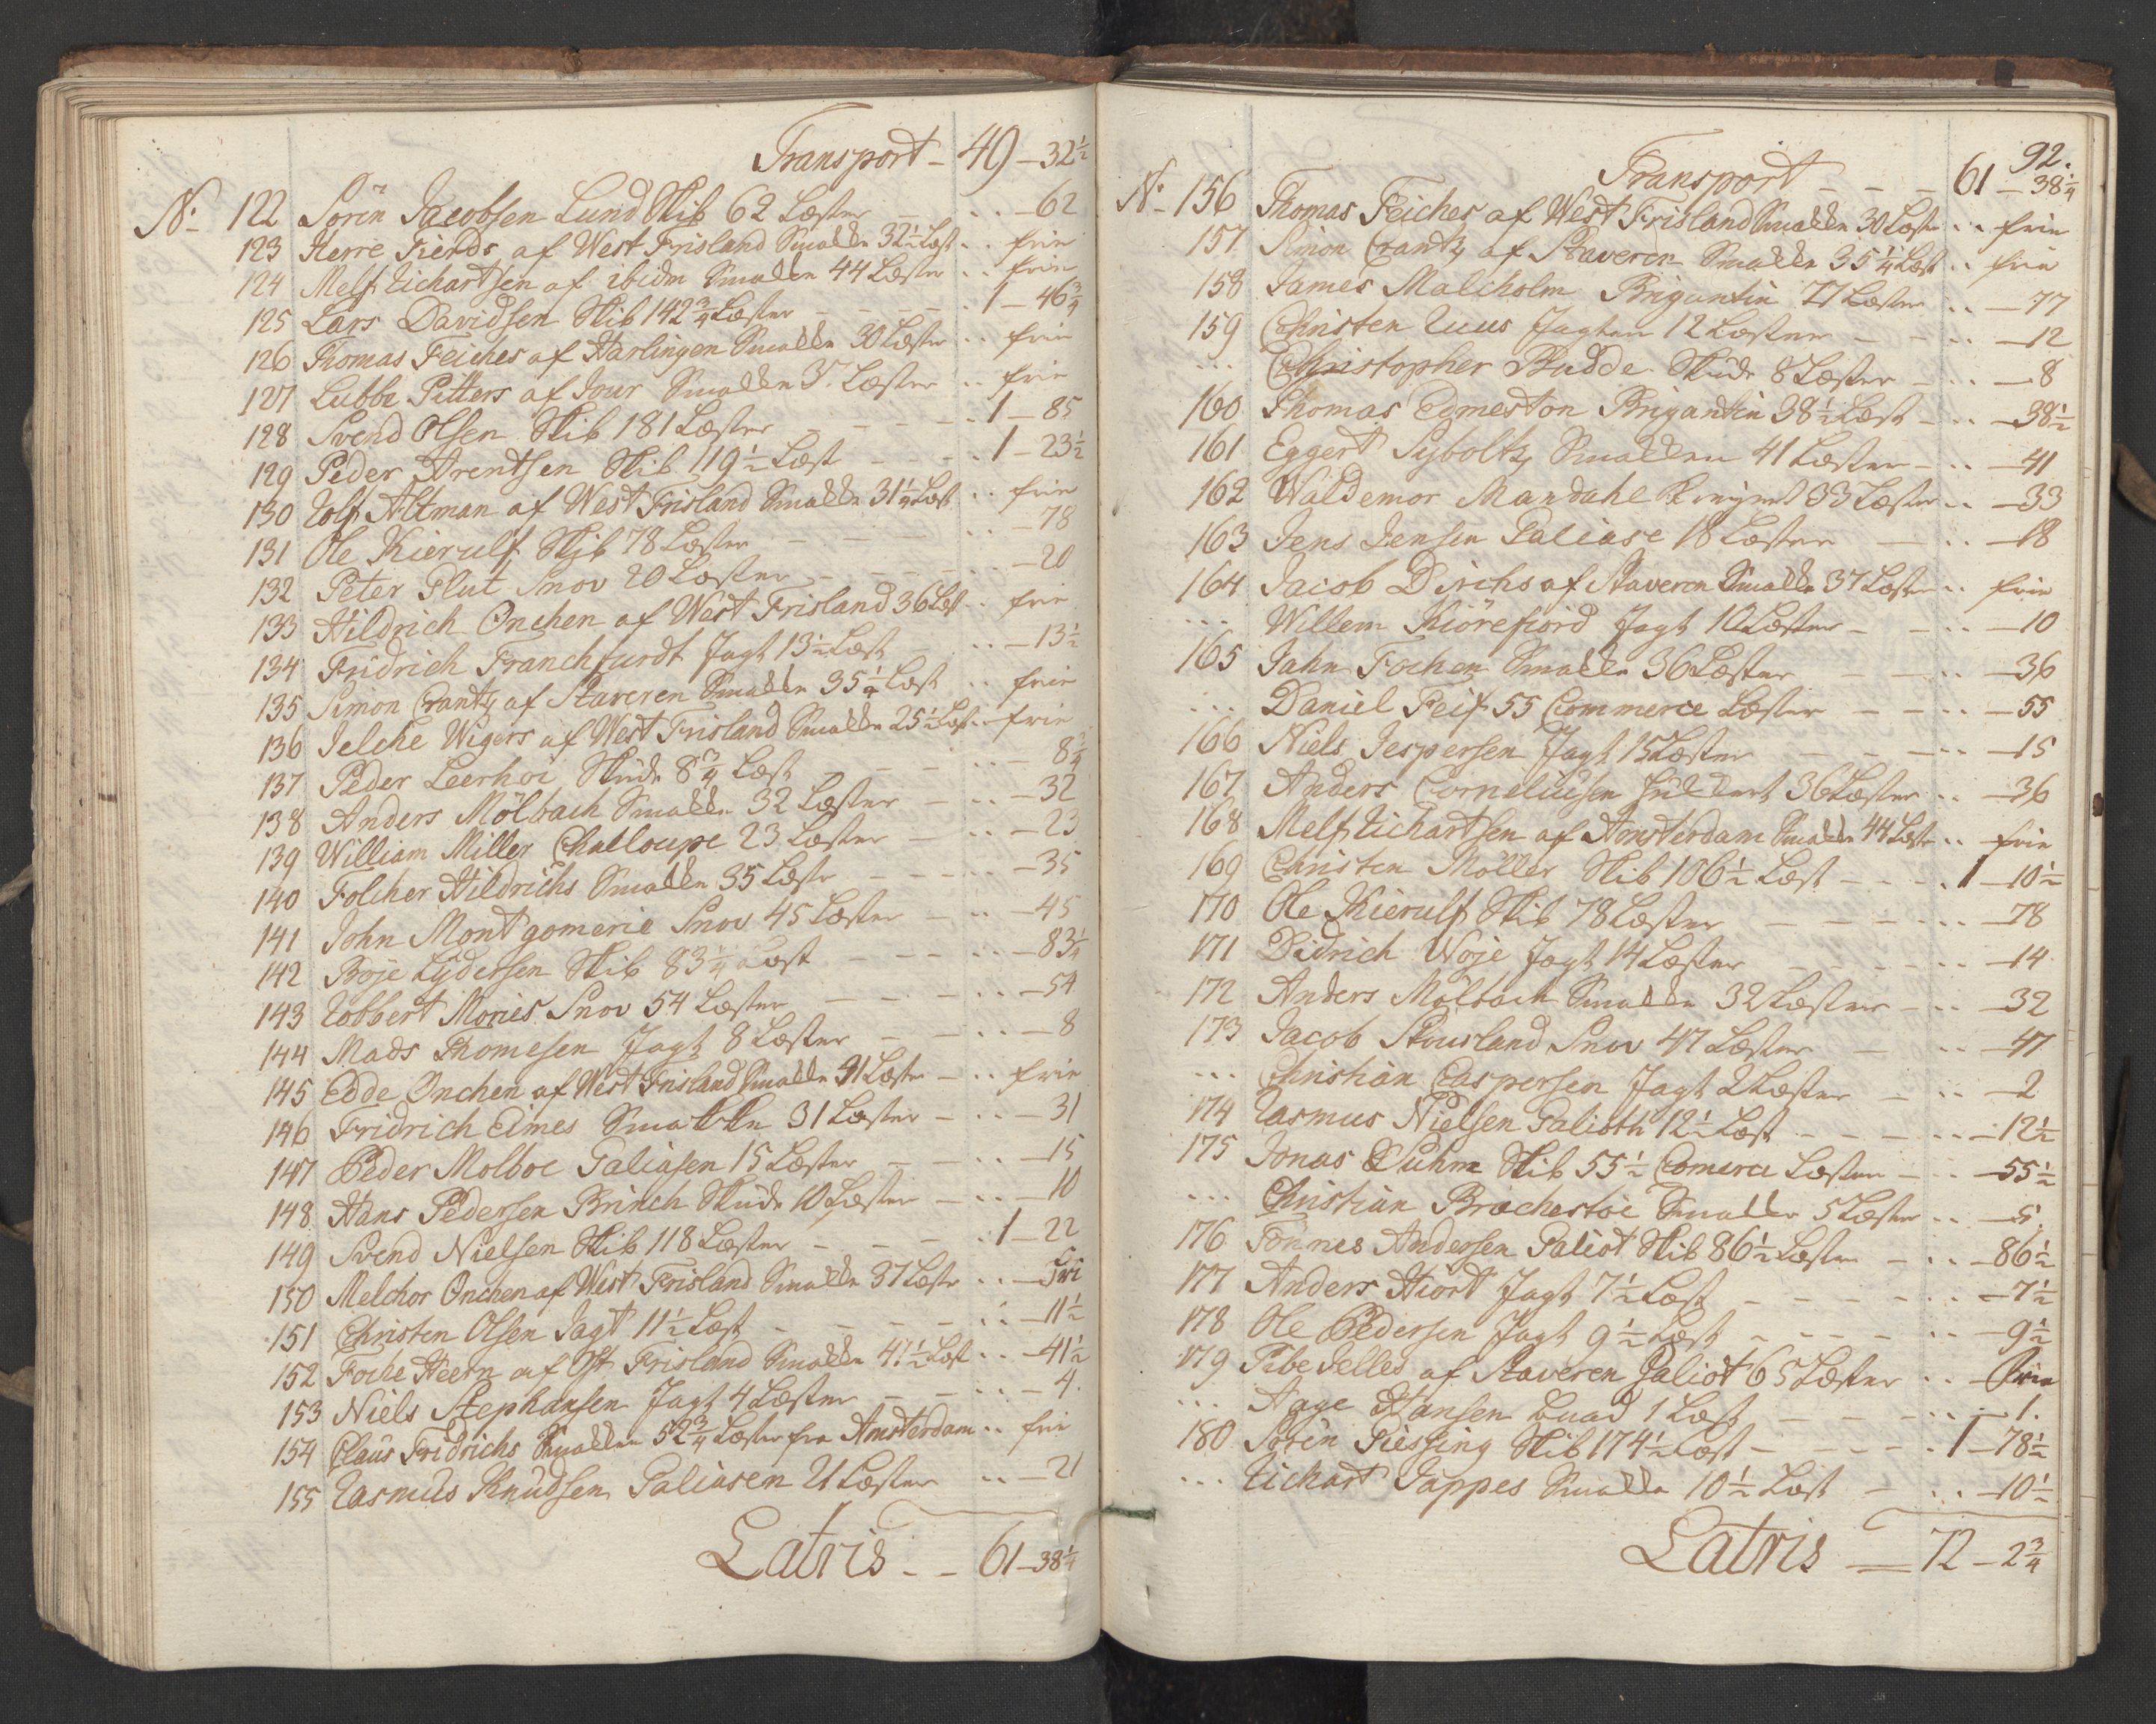 Transport - 49 - 32½
No. 122 Sörin Jacobsen Lund Skib 62 Læster - . . - 62
123 Herre Fierds af West Frisland Smakke 32½ Læst . . frie
124 Melf Richartsen af ibidm Smakke 44 Læster . . frie
125 Lars Davidsen Skib 142¾ Læster - - - - . 1 - 46¾
126 Thomas Feiches af Harlingen Smakke 30 Læster . . frie
127 Lubbe Pitters af Jour Smakke 37 Læster . . frie
128 Svend Olsen Skib 181 Læster - - - - . 1 - 85
129 Peder Arentsen Skib 119½ Læst - - - . 1 - 23½
130 Rolf Altman af West Frisland Smakke 31¼ Læst . . frie
131 Ole Kierulf Skib 78 Læster - - - . . - 78
132 Peter Plut Snov 20 Læster - - - . . - 20
133 Hildrich Onchen af West Frisland 36 Læst . . frie
134 Fridrich Franchfurdt Jagt 13½ Læst - . . - 13½
135 Simon Crantz af Staveren Smakke 35¼ Læst . . frie
136 Jelche Wigers af West Frisland Smakke 25½ Læst . . frie
137 Peder Leerhoi Skude 8¾ Læst - - - . . - 8¾
138 Anders Mölbach Smakke 32 Læster - . . - 32
139 William Miller Challoupe 23 Læster - . . - 23
140 Folcher Hildrichs Smakke 35 Læstr - - - . . - 35
141 John Montgomerie Snov 45 Læster - . . - 45
142 Boje Lydersen Skib 83¼ Læst - - - . . - 83¼
143 Robbert Mories Snov 54 Læster - - - . . - 54
144 Mads Thomesen Jagt 8 Læster - - . . - 8
145 Edde Onchen af West Frisland Smakke 41 Læster - . . frie
146 Fridrich Eimes Smakke 31 Læster - . . - 31
147 Peder Molboe Galiasen 15 Læster - - . . - 15
148 Hans Pedersen Brinch Skude 10 Læster - . . - 10
149 Svend Nielsen Skib 118 Læster - - - . 1 - 22
150 Melchor Onchen af West Frisland Smakke 37 Læstr . . - fri
151 Christen Olsen Jagt 11½ Læst - - - - . . - 11½
152 Foche Heern af Ost Frisland Smakke 41½ Læst . . - 41½
153 Niels Stephansen Jagt 4 Læster - - . . - 4.
154 Claus Fridrichs Smakken 52¾ Læster fra Amsterdam . . frie
155 Rasmus Knudsen Galiasen 21 Læster . . - 21
Latris - - 61 - 38¼
92.
Transport - - - 61 - 38¼
No. 156 Thomas Feiches af West Frisland Smakke 30 Læst . . frie
157 Simon Crantz af Staveren Smakke 35¼ Læst . . frie
158 James Malcholm Brigantin 77 Læster . . - 77
159 Christen Ruus Jagten 12 Læster - - . . - 12
... Christopher Budde Skude 8 Læster - . . - 8
160 Thomas Edmeston Brigantin 38½ Læst - . . - 38½
161 Eggert Syboltz Smakken 41 Læster - . . - 41
162 Waldemor Mandahl 33 Læster . . - 33
163 Jens Jensen Galiase 18 Læster - . . - 18
164 Jacob Dirchs af Staveren Smakke 37 Læster . . frie
... Willem Kiörefiord Jagt 10 Læster - - . . - 10
165 Jahn Fochen Smakke 36 Læster - - . . - 36
... Daniel Peif 55 Commerce Læster - - . . - 55
166 Niels Jespersen Jagt 15 Læster - - - . . - 15
167 Anders Corneliusen Huckert 36 Læster . . - 36
168 Melf Richartsen af Amsterdam Smakke 44 Læstr . . frie
169 Christen Möller Skib 106½ Læst - - - . 1 - 10½
170 Ole Kierulf Skib 78 Læster - - - . . - 78
171 Didrich Woje Jagt 14 Læster - - - . . - 14
172 Anders Mölbach Smakke 32 Læster - . . - 32
173 Jacob Stousland Snov 47 Læster - . . - 47
... Christian Caspersen Jagt 2 Læster - . . - 2
174 Rasmus Nielsen Galioth 12½ Læst - - - . . - 12½
175 Jonas Suhm Skib 55½ Comerce Læster - . . - 55½
... Christian Brochestoe Smakke 5 Læster . . - 5.
176 Tönnes Andersen Galiot Skib 86½ Læster - . . - 86½
177 Anders Hiort Jagt 7½ Læst - - - - . . - 7½
178 Ole Pedersen Jagt 9½ Læst - - - - . . - 9½
179 Pibe Jelles af Staveren Galiot 65 Læster . . - frie
... Aage Hansen Baad 1 Læst - - - . . - 1.
180 Sörin Giessing Skib 174½ Læst - - - - . 1 - 78½
... Richart Jappes Smakke 10½ Læst - . . - 10½
Latris - 72 - 2¾